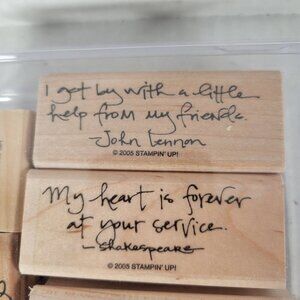 I get by with a little
help from my friends.
-John Lennon
© 2005 STAMPIN' UP!
My heart is forever
at your service.
-Shakespeare
© 2005 STAMPIN' UP!